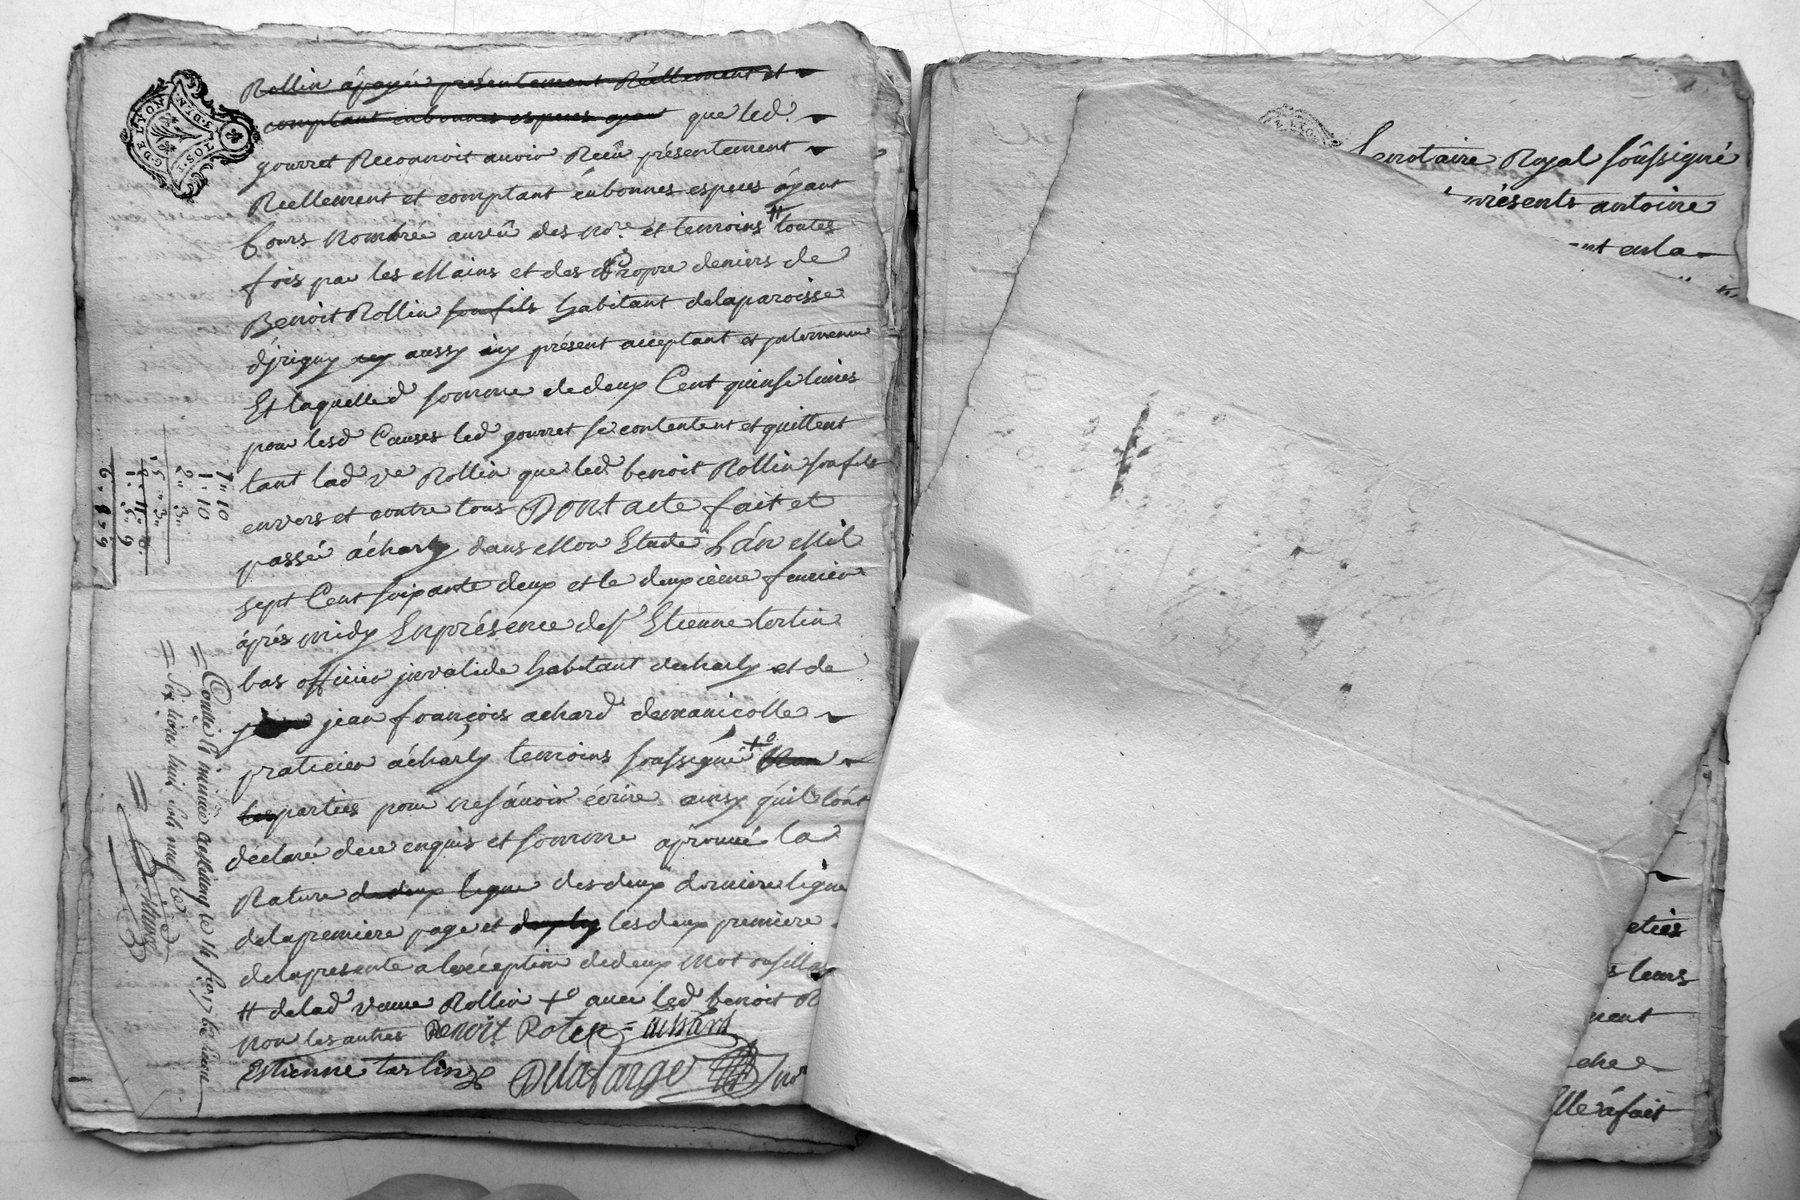 G. DE LYON
2 SOLS. DEN.
Rollin á payé présentement Réellement et
comptant en bonnes especes ayant que led.
gourret Reconnoit avoir Receu présentement
Réellement et comptant én bonnes especes áyant
Cours Nombré au veû des no.re et temoins # toutes
fois par les Mains et des Propre deniers de
Benoit Rollin son fils habitant de la paroisse
d'jrigny aussy icy présent acceptant et
Et laquelled. somme de deux Cent quinse livres
pour lesd. Causes led. gourret se contentent et quittent
tant lad. ve Rollin que led. benoit Rollin son fils
envers et contre tous Dont acte fait et
passé ácharly dans Mon Etude L'an Mil
sept Cent soixante deux et le deuxieme feurier
áprés midy En présence de sr. Etienne tertin
bas officier jnvalide habitant de charly et de
jean françois achard demanicolle
praticien ácharly temoins soussigné +o Non
les parties pour ne sçavoir écrire ainsy qu'il l'ont
déclaré de ce enquis et somme aprouué la
Rature de deux ligne des deux derniere ligne
de la premiere page et les deux premiere
de la presente a l'excéption de deux Mot
# de lad. veuue Rollin +o auec led. benoit R
non les autres Benoit Rolin = achard
Estienne tarlin Delafarge no.re
7" 10
1. 10
2" 3"
= Controllé
= six livres huit sols neuf de
Le notaire Royal soûssigné
présents antoine
ant en la
eties
s leurs
ment
che
Elle á fait